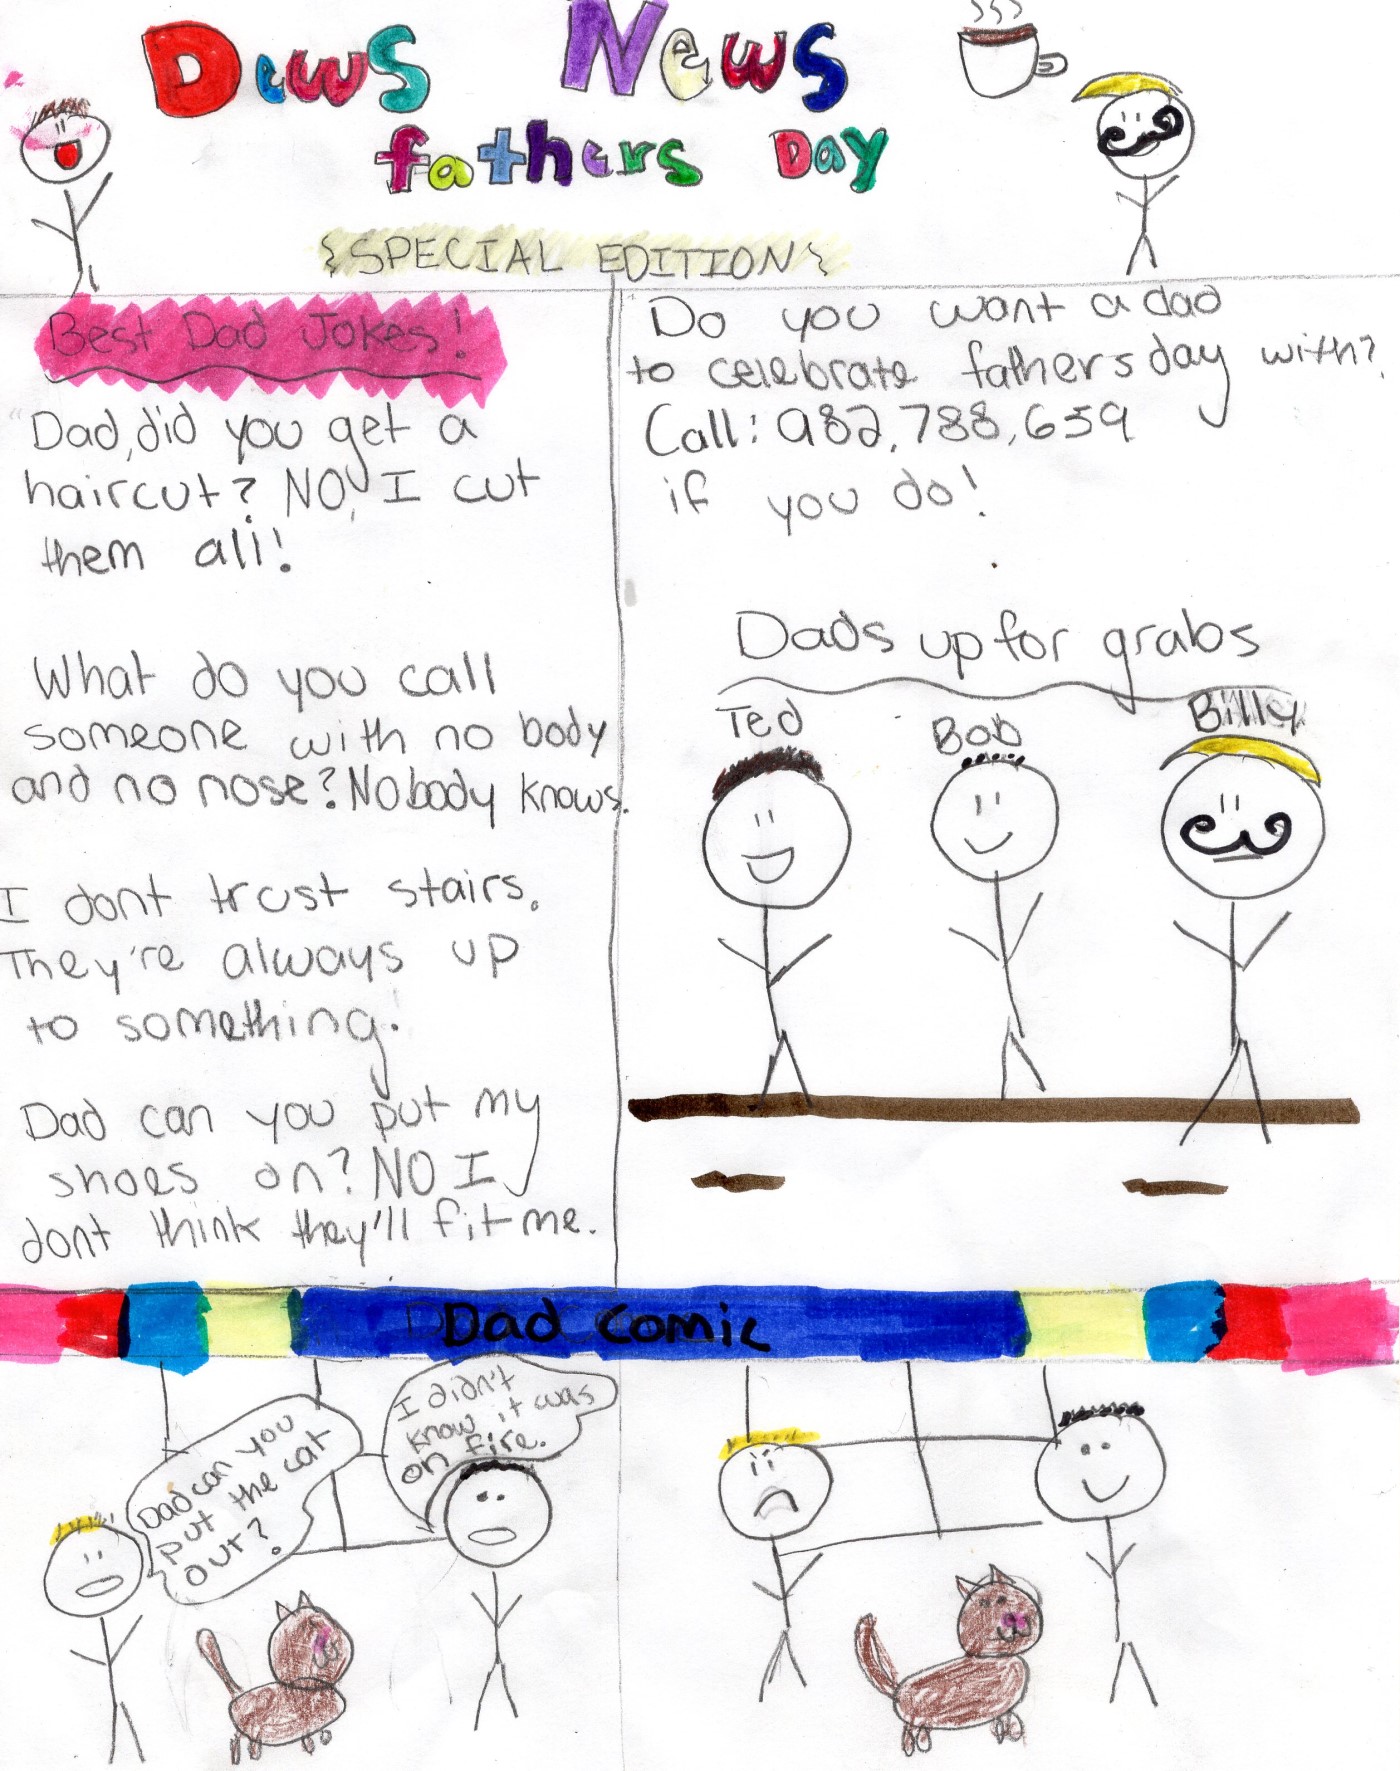 Dews News
fathers Day
{SPECIAL EDITION}
Best Dad Jokes!
Dad, did you get a
haircut? NO, I cut
them all!
What do you call
someone with no body
and no nose? Nobody knows.
I dont trust stairs.
They're always up
to something!
Dad can you put my
shoes on? NO I
dont think they'll fit me.
Do you want a dad
to celebrate fathers day with?
Call: 982,788,659
if you do!
Dads up for grabs
Ted Bob Billy
Dad Comic
Dad can you
put the cat
out?
I didn't
know it was
on fire.